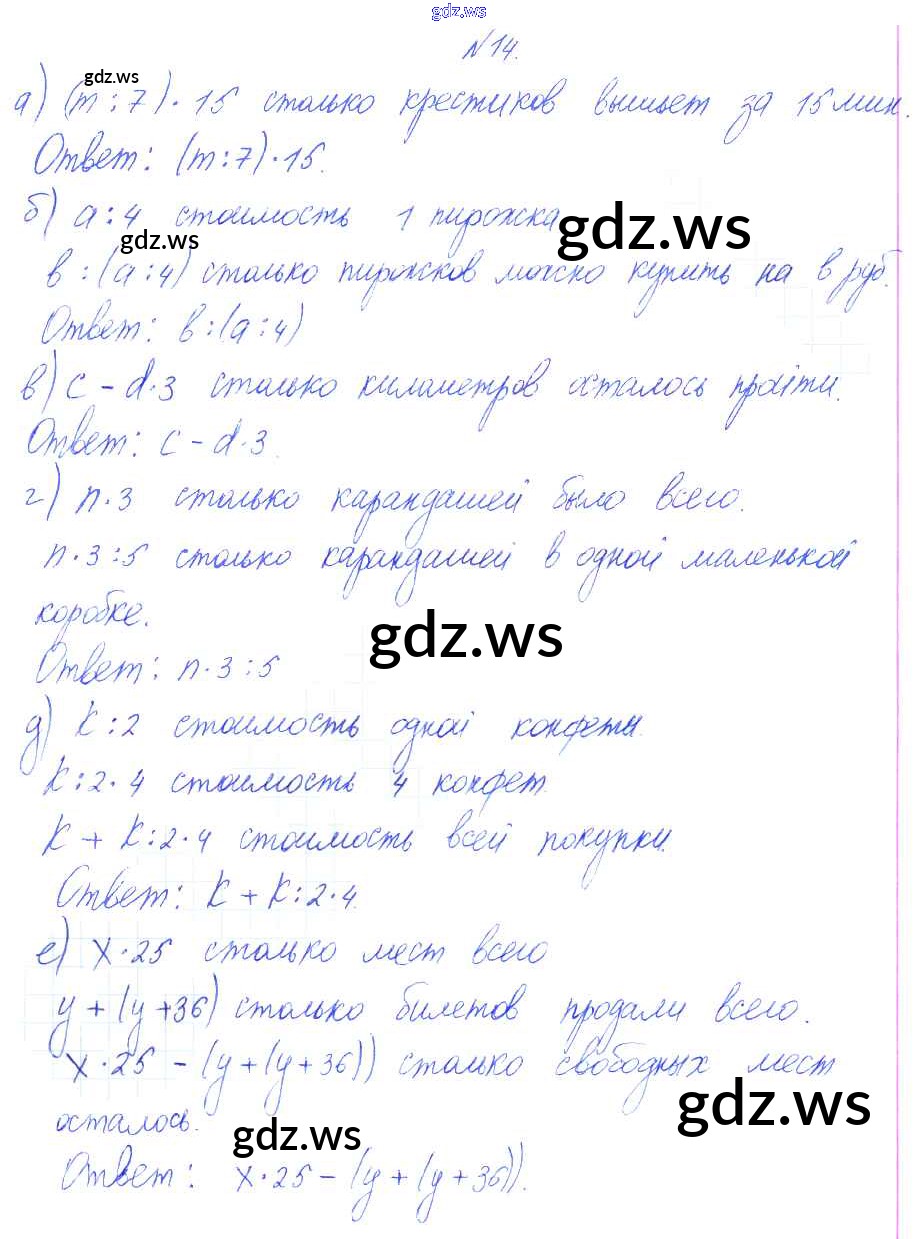 gdz.ws
№14.
gdz.ws
а) (m : 7) · 15 столько крестиков вышьет за 15 мин.
Ответ: (m : 7) · 15.
б) a : 4 стоимость 1 пирожка
gdz.ws
gdz.ws
в : (a : 4) столько пирожков можно купить на в руб.
Ответ: в : (a : 4)
в) c - d · 3 столько километров осталось пройти.
Ответ: c - d · 3.
г) n · 3 столько карандашей было всего.
n · 3 : 5 столько карандашей в одной маленькой
коробке.
gdz.ws
Ответ: n · 3 : 5
д) K : 2 стоимость одной конфеты.
K : 2 · 4 стоимость 4 конфет.
K + K : 2 · 4 стоимость всей покупки.
Ответ: K + K : 2 · 4.
е) x · 25 столько мест всего
y + (y + 36) столько билетов продали всего.
x · 25 - (y + (y + 36)) столько свободных мест
gdz.ws
осталось.
gdz.ws
Ответ: x · 25 - (y + (y + 36)).